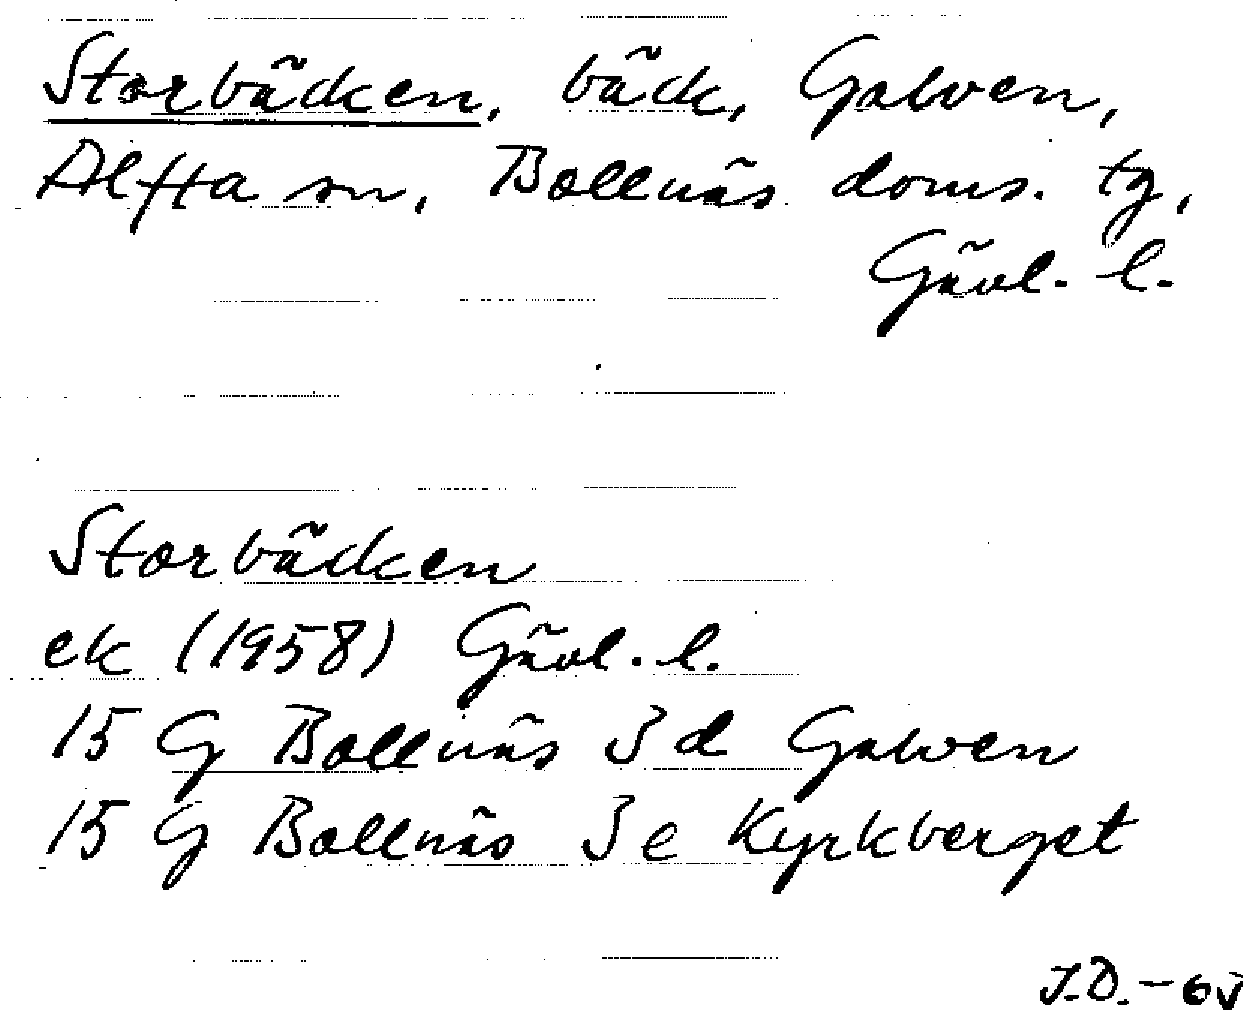 Storbäcken, bäck, Galven,
Alfta sn, Bollnäs doms. tg,
Gävl. l.
Storbäcken
ek (1958) Gävl. l.
15 G Bollnäs 3 d Galven
15 G Bollnäs 3 e Kyrkberget
J.D.